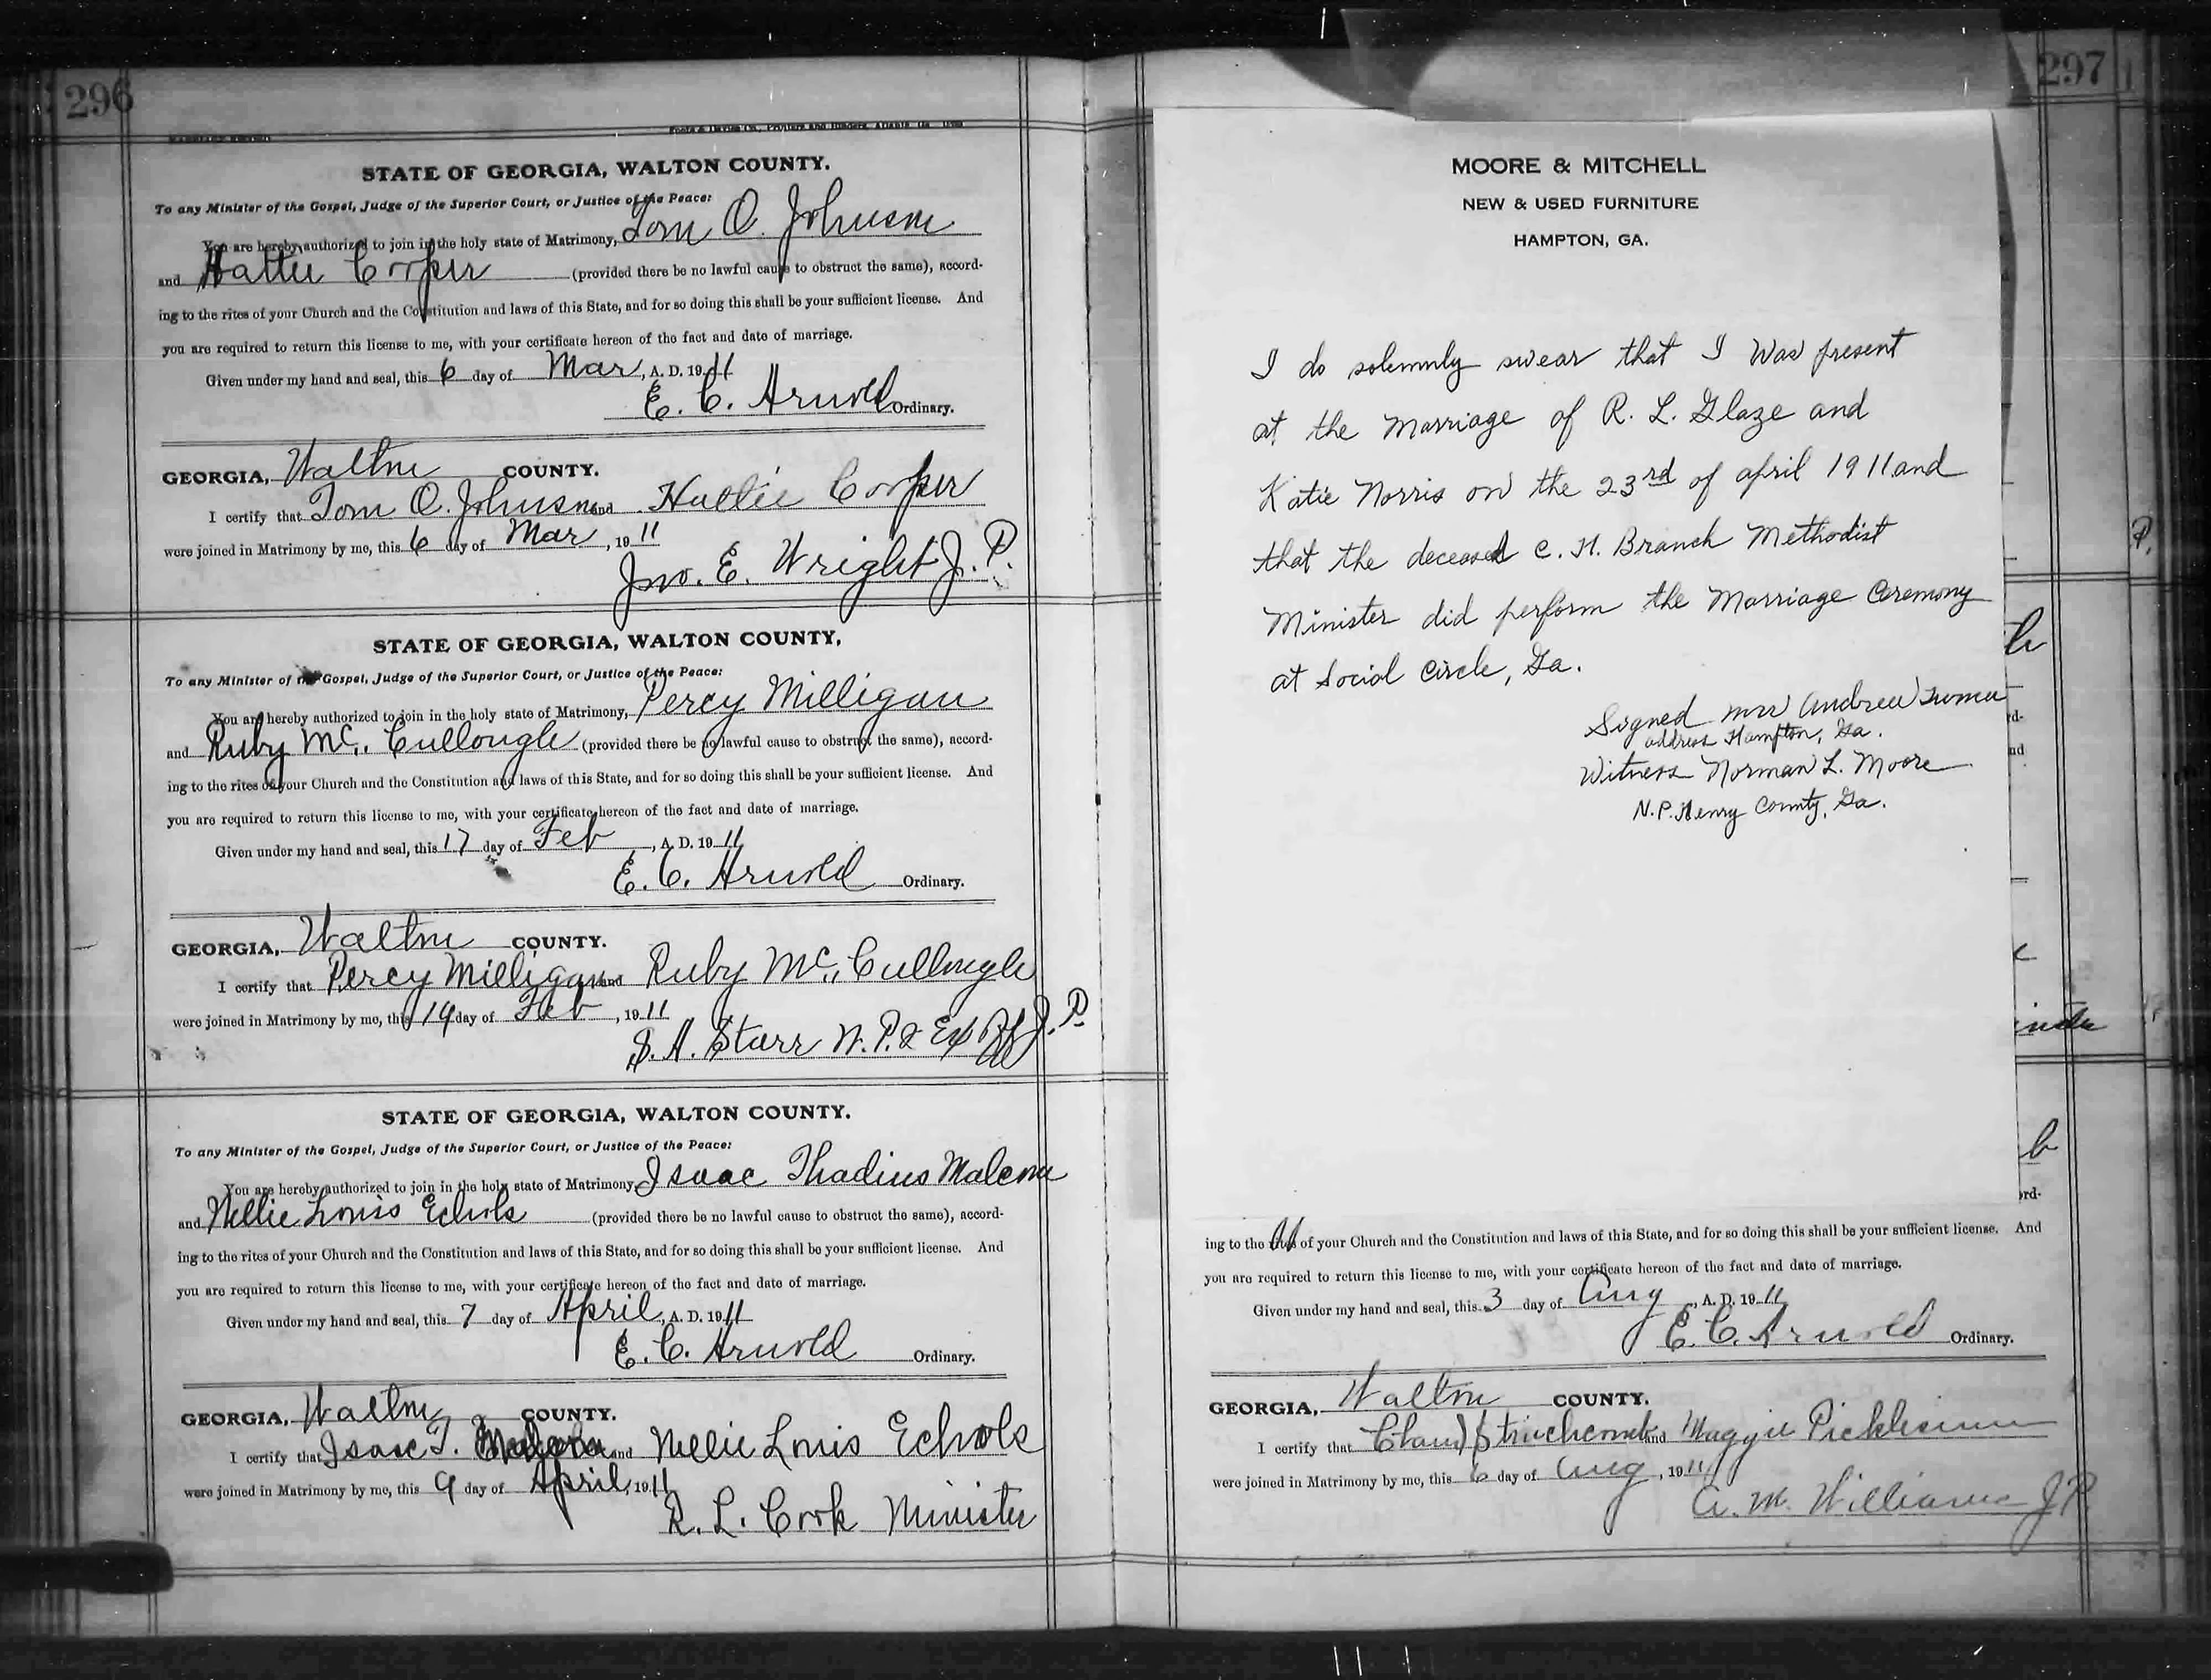 296
STATE OF GEORGIA, WALTON COUNTY.
To any Minister of the Gospel, Judge of the Superior Court, or Justice of the Peace:
You are hereby authorized to join in the holy state of Matrimony, Tom O. Johnson
and Hattie Cooper (provided there be no lawful cause to obstruct the same), accord-
ing to the rites of your Church and the Constitution and laws of this State, and for so doing this shall be your sufficient license. And
you are required to return this license to me, with your certificate hereon of the fact and date of marriage.
Given under my hand and seal, this 6 day of Mar, A. D. 1911
E. C. Arnold Ordinary.
GEORGIA, Walton COUNTY.
I certify that Tom O. Johnson and Hattie Cooper
were joined in Matrimony by me, this 6 day of Mar, 1911
Jno. E. Wright J. P.
STATE OF GEORGIA, WALTON COUNTY,
To any Minister of the Gospel, Judge of the Superior Court, or Justice of the Peace:
You are hereby authorized to join in the holy state of Matrimony, Percy Milligan
and Ruby Mc. Cullough (provided there be no lawful cause to obstruct the same), accord-
ing to the rites of your Church and the Constitution and laws of this State, and for so doing this shall be your sufficient license. And
you are required to return this license to me, with your certificate hereon of the fact and date of marriage.
Given under my hand and seal, this 17 day of Feb, A. D. 1911
E. C. Arnold Ordinary.
GEORGIA, Walton COUNTY.
I certify that Percy Milligan and Ruby Mc. Cullough
were joined in Matrimony by me, this 19 day of Feb, 1911
S. A. Starr N. P. & Ex Off J. P.
STATE OF GEORGIA, WALTON COUNTY.
To any Minister of the Gospel, Judge of the Superior Court, or Justice of the Peace:
You are hereby authorized to join in the holy state of Matrimony, Isaac Thadius Malcom
and Nellie Louis Echols (provided there be no lawful cause to obstruct the same), accord-
ing to the rites of your Church and the Constitution and laws of this State, and for so doing this shall be your sufficient license. And
you are required to return this license to me, with your certificate hereon of the fact and date of marriage.
Given under my hand and seal, this 7 day of April, A. D. 1911
E. C. Arnold Ordinary.
GEORGIA, Walton COUNTY.
I certify that Isaac T. and Nellie Louis Echols
were joined in Matrimony by me, this 9 day of April, 1911
R. L. Cook Minister
297
MOORE & MITCHELL
NEW & USED FURNITURE
HAMPTON, GA.
I do solemnly swear that I Was present
at the marriage of R. L. Glaze and
Katie Norris on the 23rd of april 1911 and
that the deceased C. H. Branch Methodist
Minister did perform the Marriage Ceremony
at Social Circle, Ga.
Signed Mrs Andrew
address Hampton, Ga.
Witness Norman L. Moore
N. P. Henry County, Ga.
ing to the rites of your Church and the Constitution and laws of this State, and for so doing this shall be your sufficient license. And
you are required to return this license to me, with your certificate hereon of the fact and date of marriage.
Given under my hand and seal, this 3 day of Aug, A. D. 1911
E. C. Arnold Ordinary.
GEORGIA, Walton COUNTY.
I certify that Claud Stinchcomb and Maggie Picklesimer
were joined in Matrimony by me, this 6 day of Aug, 1911
A. M. Williams J P.